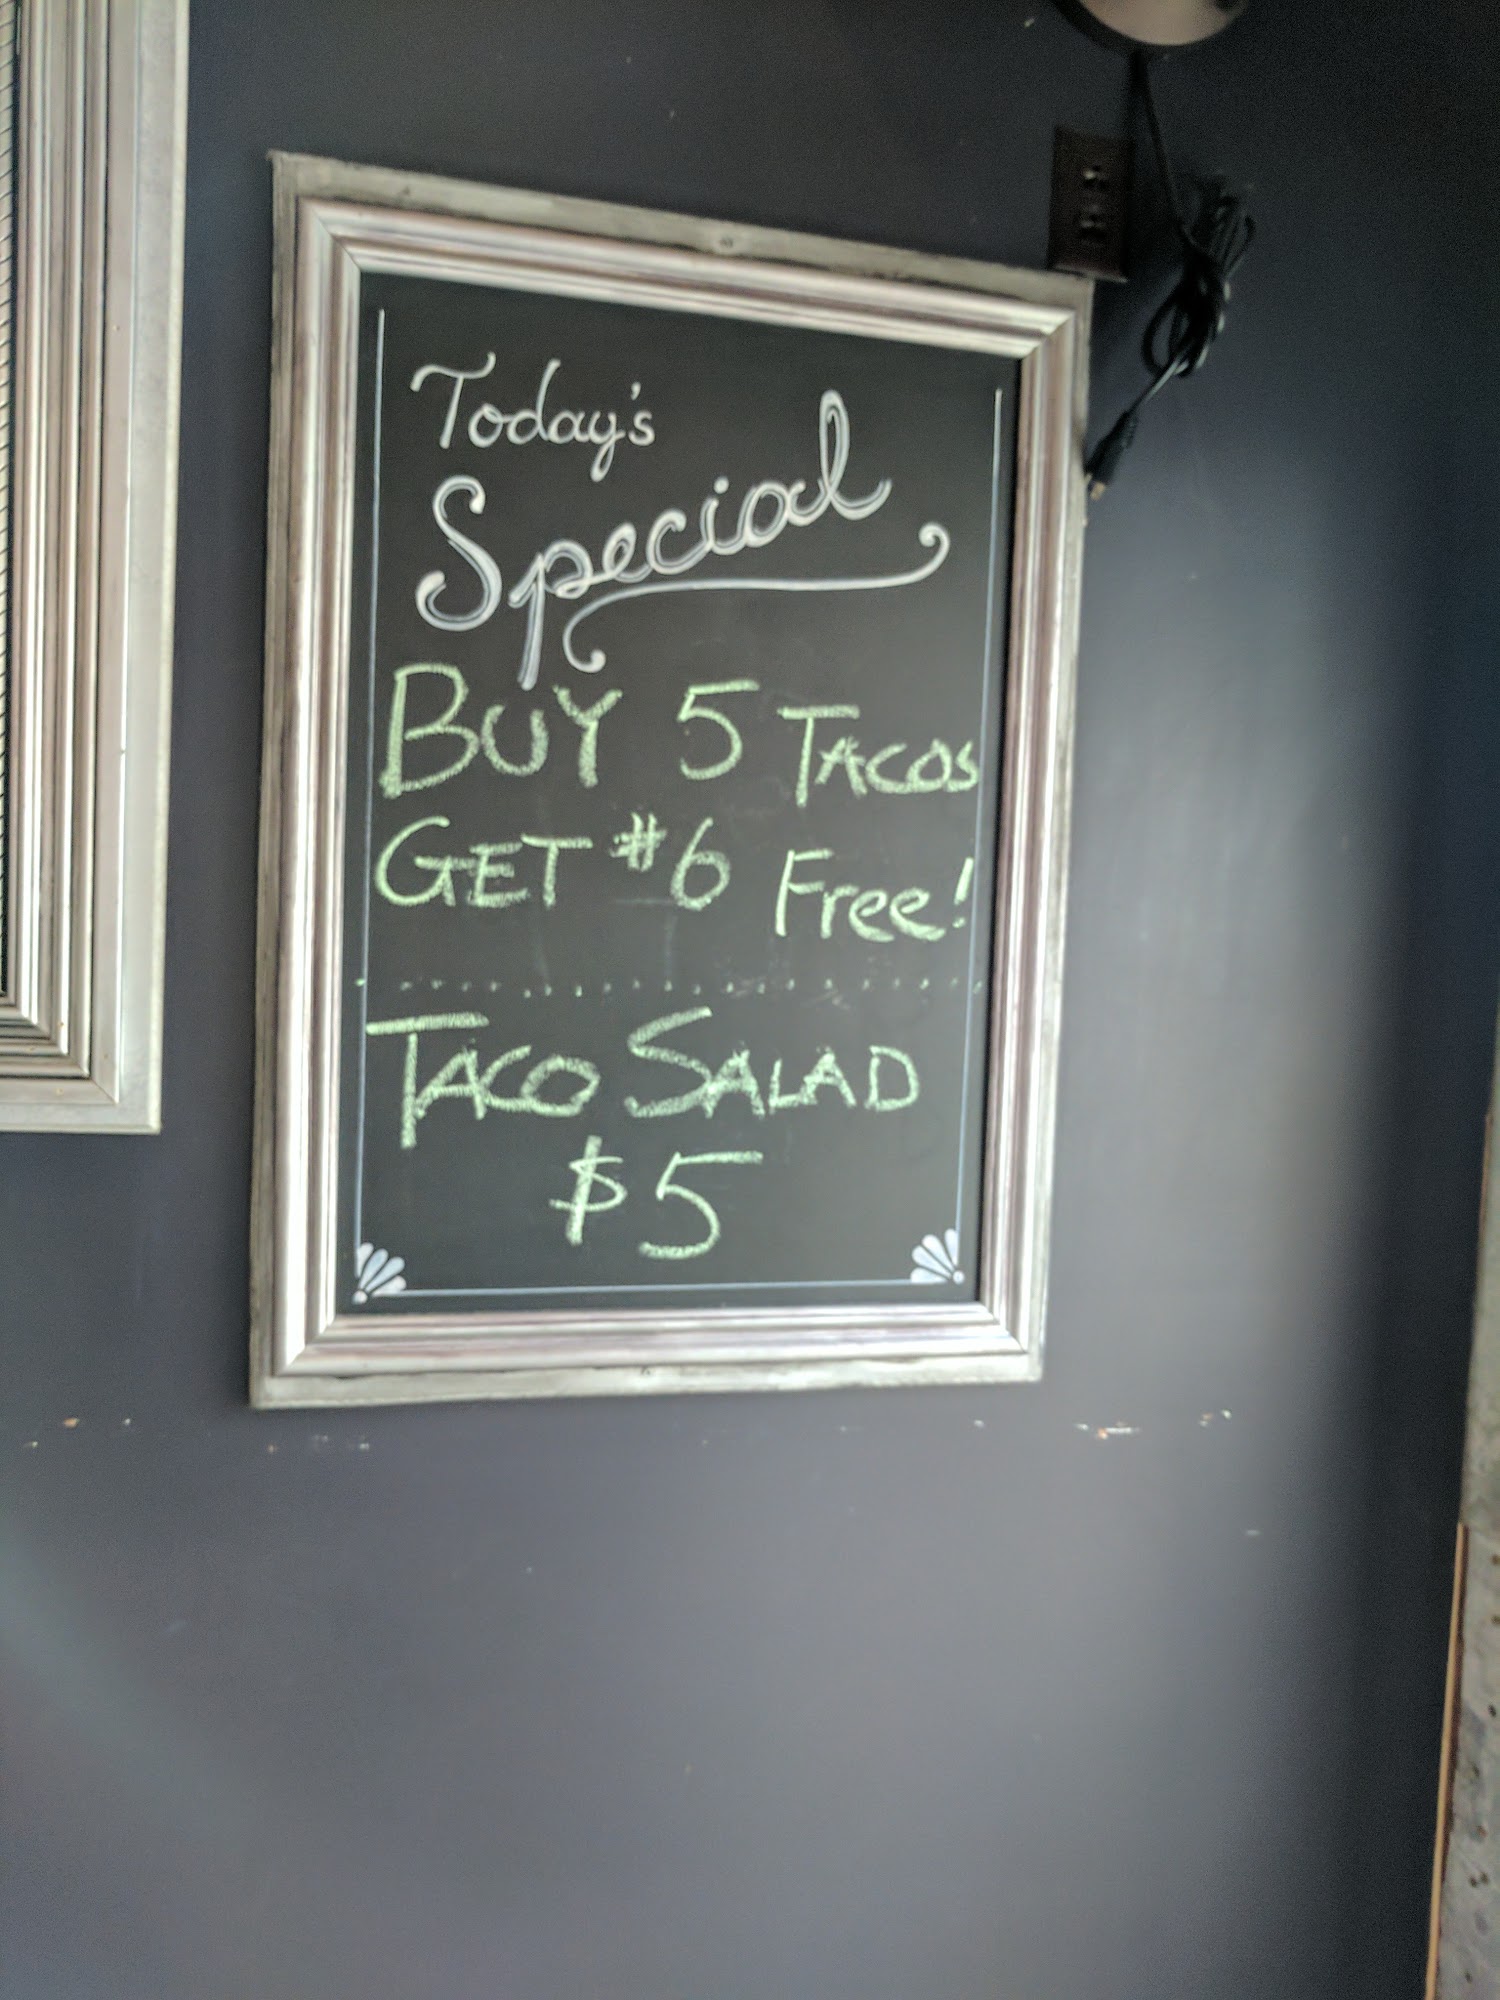 Today's
Special
BUY 5 TACOS
GET #6 Free!
TACO SALAD
$5